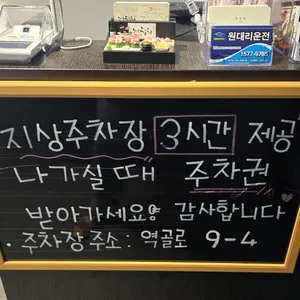 원대리운전
1577-9785
지상주차장 3시간 제공
나가실때 주차권
받아가세요 감사합니다
· 주차장 주소 : 역골로 9-4